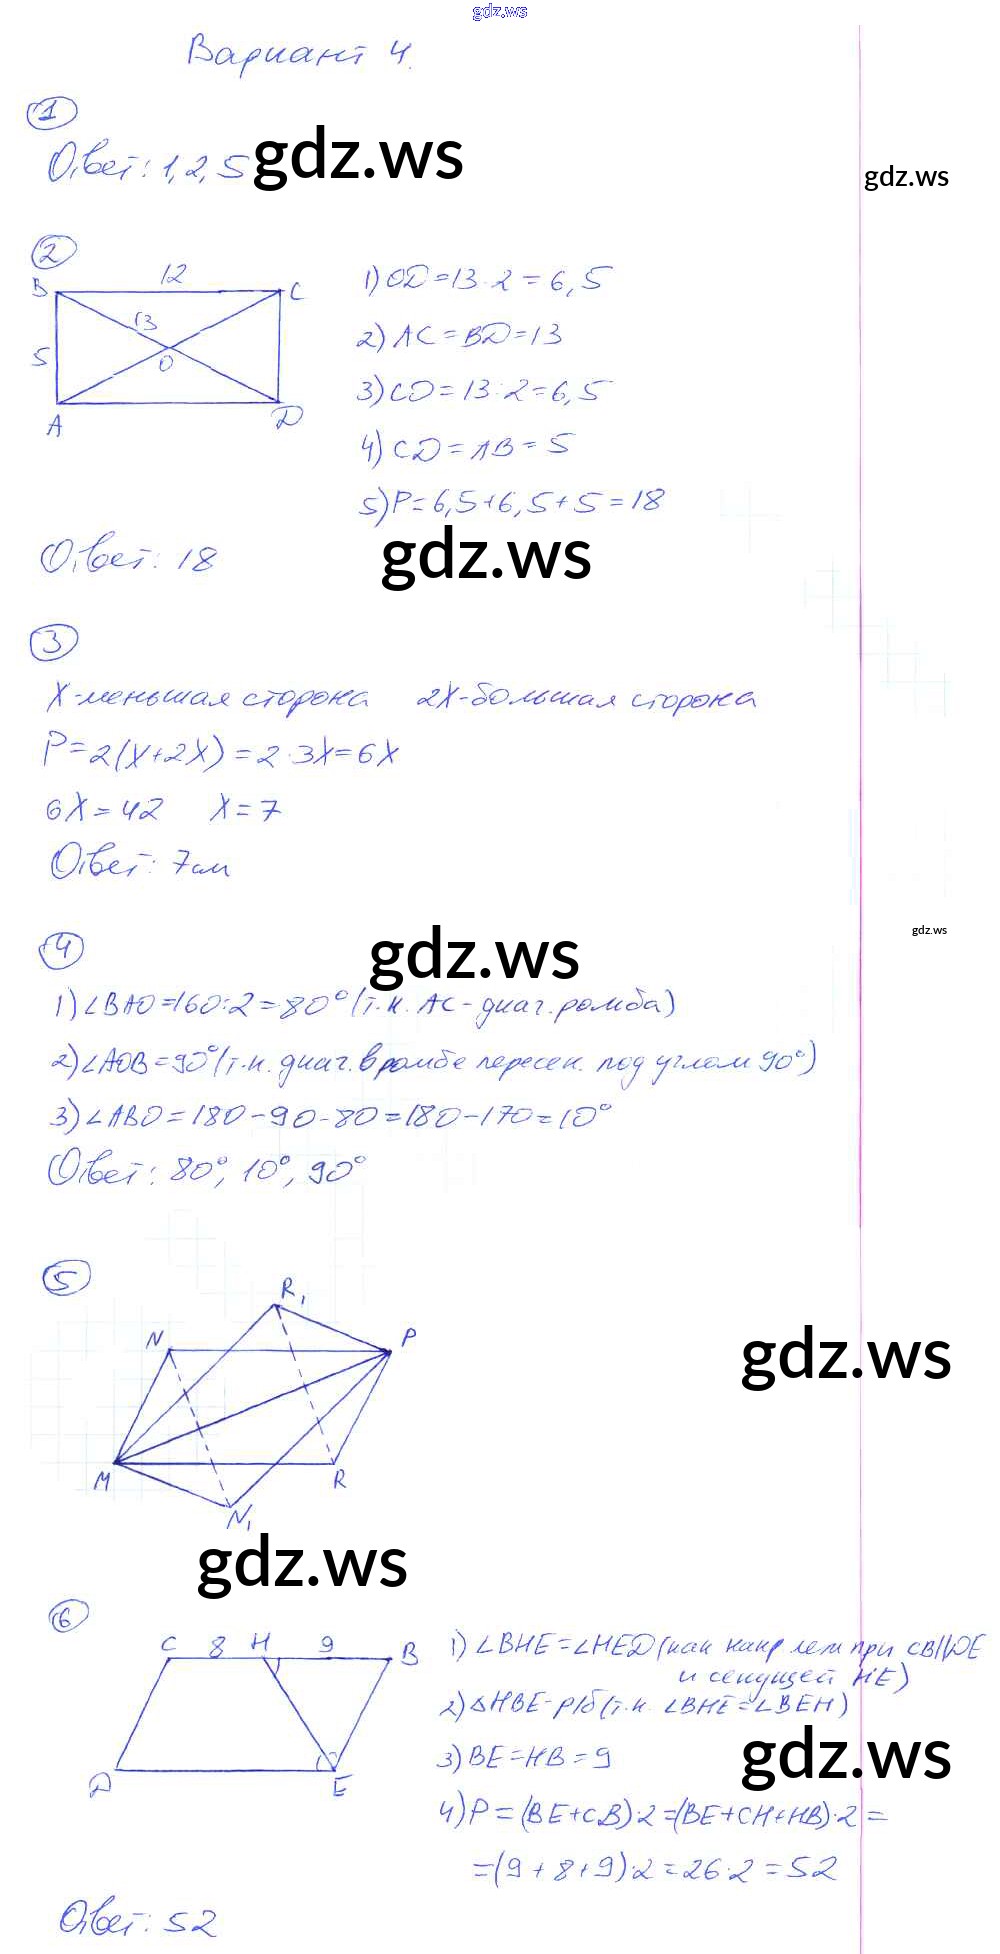 gdz.ws
Вариант 4.
1
Ответ: 1, 2, 5
gdz.ws
gdz.ws
2
B 12 C
13
5
O
A D
1) OD = 13 : 2 = 6,5
2) AC = BD = 13
3) CO = 13 : 2 = 6,5
4) CD = AB = 5
5) P = 6,5 + 6,5 + 5 = 18
gdz.ws
Ответ: 18
3
X - меньшая сторона 2X - большая сторона
P = 2(X + 2X) = 2 · 3X = 6X
6X = 42 X = 7
Ответ: 7 см
gdz.ws
4
gdz.ws
1) ∠BAO = 160 : 2 = 80° (т.к. AC - диаг. ромба)
2) ∠AOB = 90° (т.к. диаг. в ромбе пересек. под углом 90°)
3) ∠ABO = 180 - 90 - 80 = 180 - 170 = 10°
Ответ: 80°, 10°, 90°
5
R₁
N P
gdz.ws
M R
N₁
gdz.ws
6
C 8 H 9 B
D E
1) ∠BHE = ∠HED (как накр леж при CB||DE
и секущей HE)
2) △HBE - р/б (т.к. ∠BHE = ∠BEH)
gdz.ws
3) BE = HB = 9
4) P = (BE + CB) · 2 = (BE + CH + HB) · 2 =
= (9 + 8 + 9) · 2 = 26 · 2 = 52
Ответ: 52